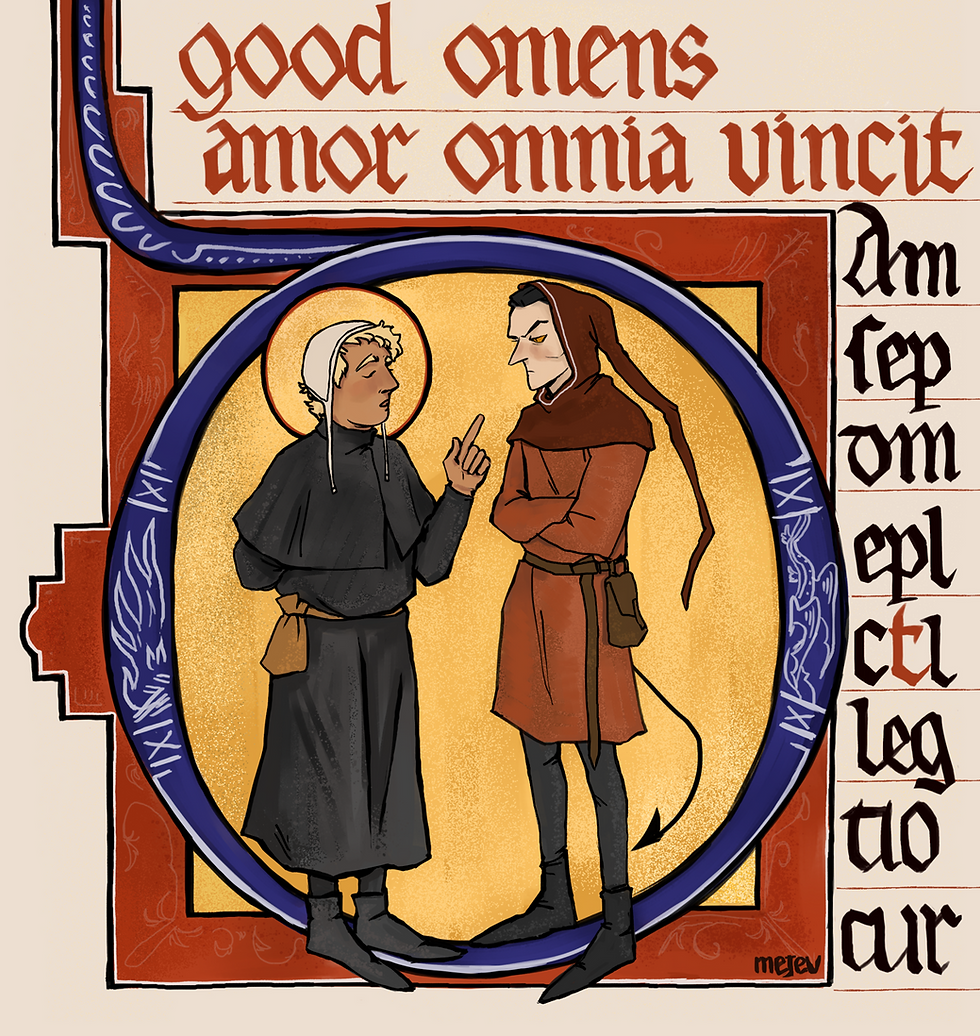 good omens
amor omnia vincit
Am
ſep
om
epl
ctl
leg
tio
cur
meJev